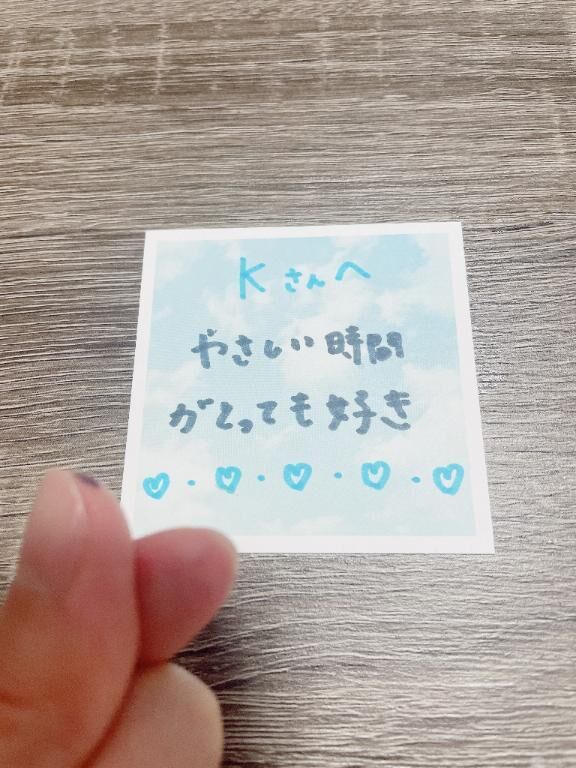 Kさんへ
やさしい時間
がとっても好き